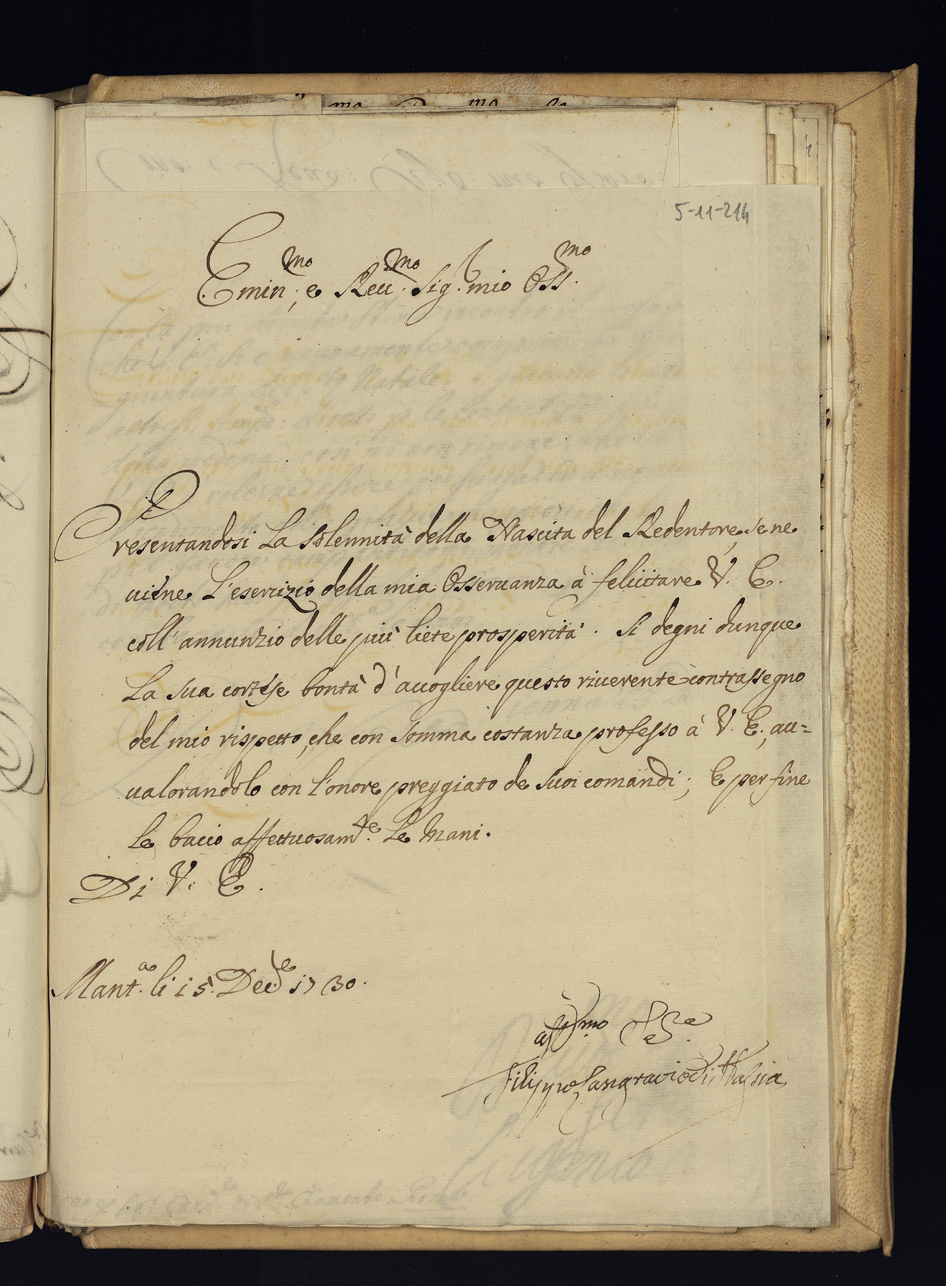 5-11-214
Emin.mo, e Reu.mo Sig. mio Oss.mo
Presentandosi La Solennità della Nascita del Redentore, se ne
uiene L'esercizio della mia Osseruanza à felicitare V. E.
coll' annunzio delle più liete prosperità. Si degni dunque
La sua cortese bontà d'accogliere questo riuerente contrassegno
del mio rispetto, che con somma costanza professo à V. E., au=
ualorandolo con l'onore preggiato de suoi comandi; E per fine
le bacio affettuosam.te Le Mani.
Di V. E.
Mant.a li 15. Dec.e 1730.
aff.mo Se.re
Filippo Langravio di Hassia